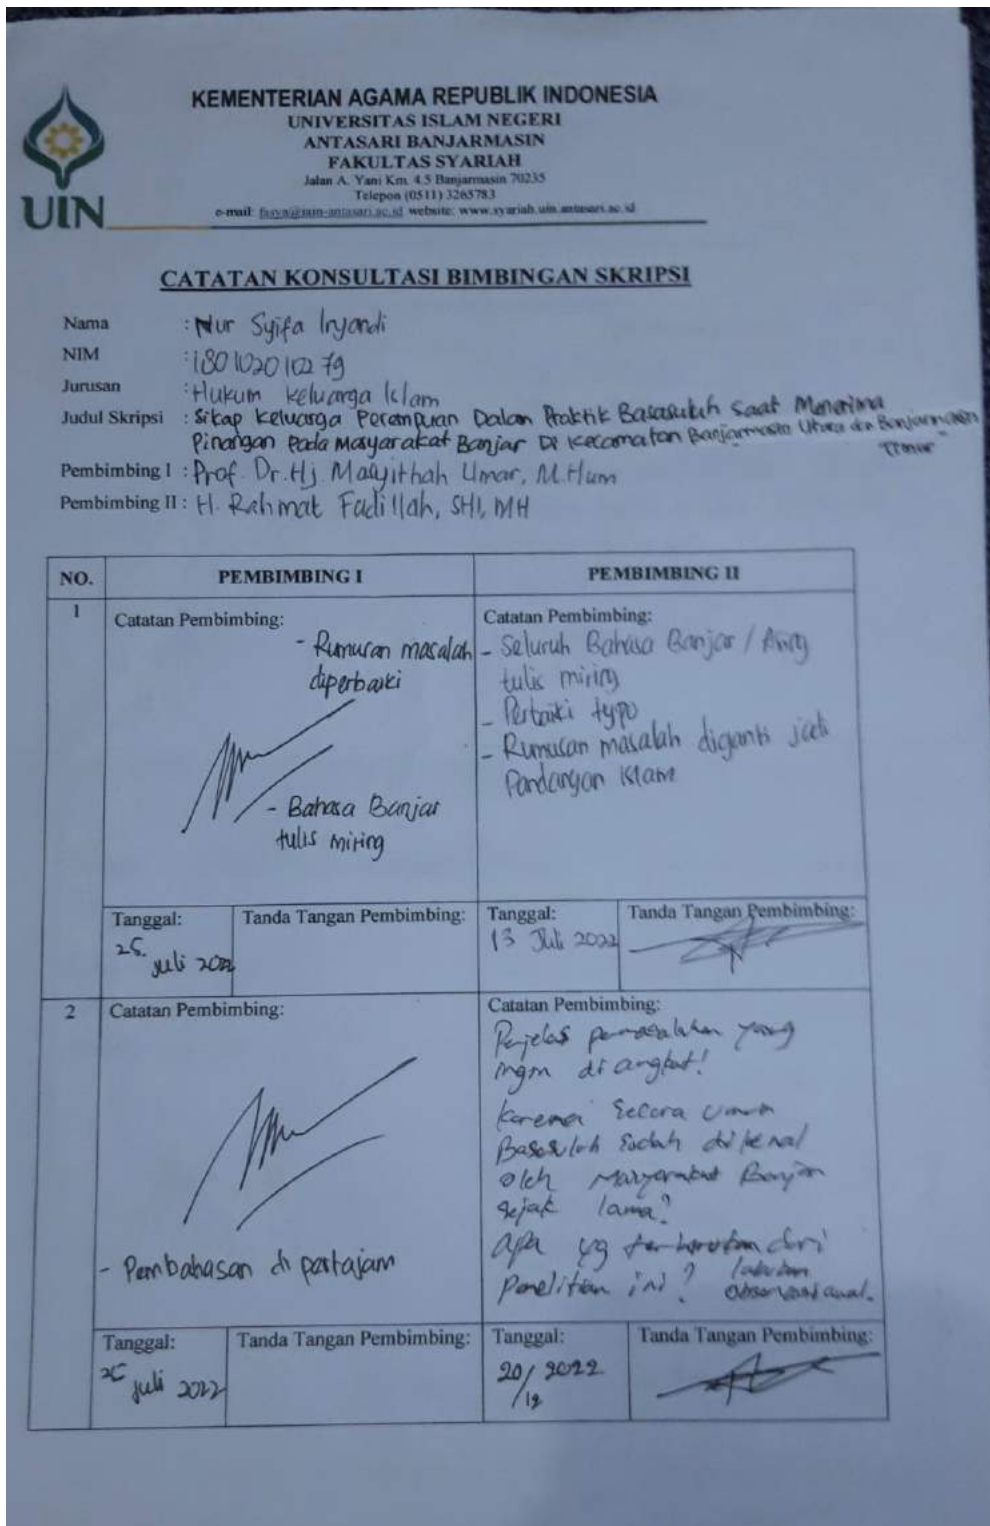 KEMENTERIAN AGAMA REPUBLIK INDONESIA
UNIVERSITAS ISLAM NEGERI
ANTASARI BANJARMASIN
FAKULTAS SYARIAH
Jalan A. Yani Km. 4.5 Banjarmasin 70235
Telepon (0511) 3265783
e-mail: fasya@iain-antasari.ac.id website: www.syariah.uin.antasari.ac.id
UIN
CATATAN KONSULTASI BIMBINGAN SKRIPSI
Nama : Nur Syifa Iryandi
NIM : 180102010279
Jurusan : Hukum keluarga Islam
Judul Skripsi : Sikap Keluarga Perempuan Dalam Praktik Basasuluh Saat Menerima
Pinangan Pada Masyarakat Banjar Di Kecamatan Banjarmasin Utara dan Banjarmasin
Timur
Pembimbing I : Prof. Dr. Hj. Masyithah Umar, M.Hum
Pembimbing II : H. Rahmat Fadillah, SHI, MH
NO. PEMBIMBING I PEMBIMBING II
1
Catatan Pembimbing:
- Rumusan masalah
diperbaiki
- Bahasa Banjar
tulis miring
Catatan Pembimbing:
- Seluruh Bahasa Banjar / Asing
tulis miring
- Perbaiki typo
- Rumusan masalah diganti jadi
Pandangan Islam
Tanggal: Tanda Tangan Pembimbing:
25
juli 2022
Tanggal: Tanda Tangan Pembimbing:
13 Juli 2022
2
Catatan Pembimbing:
- Pembahasan di pertajam
Catatan Pembimbing:
Perjelas permasalahan yang
ingin di angkat!
Karena Secara Umum
Basasuluh Sudah dikenal
oleh Masyarakat Banjar
sejak lama?
apa yg dari
Penelitian ini? lakukan
observasi awal.
Tanggal: Tanda Tangan Pembimbing:
25 juli 2022
Tanggal: Tanda Tangan Pembimbing:
20/ 2022
/12